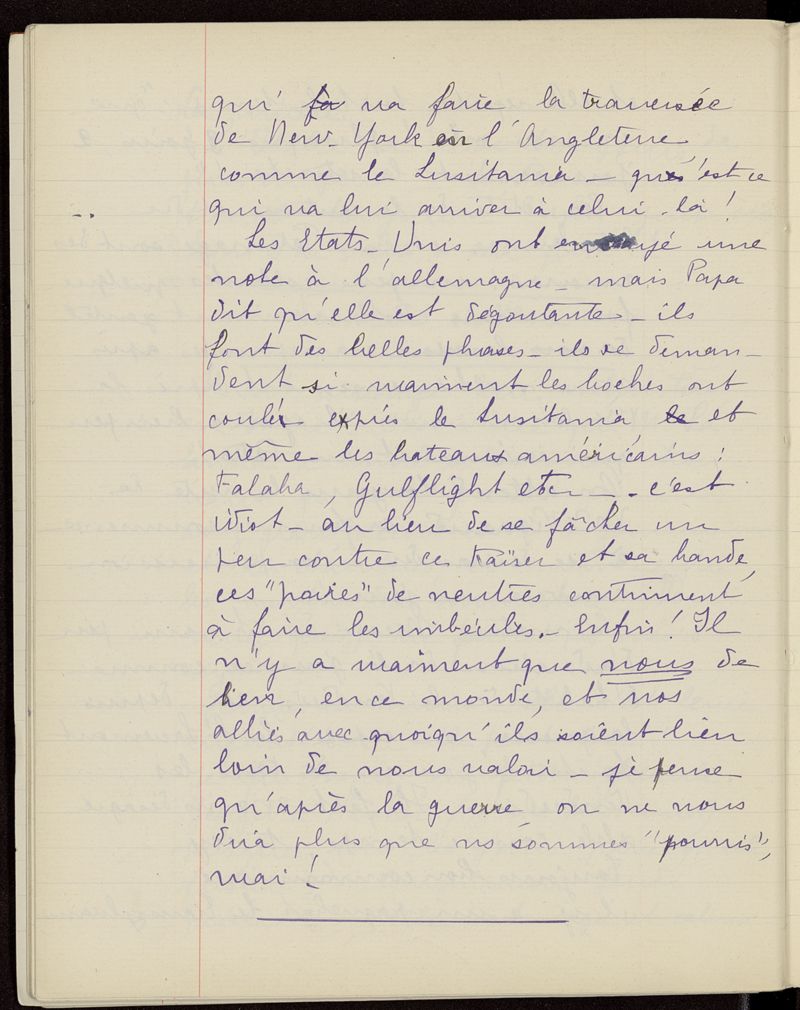 qui fa va faire la traversée
de New-York en l'Angleterre
comme le Lusitania - qu'est ce
qui va lui arriver à celui-là !
Les Etats-Unis ont envoyé une
note à l'allemagne - mais Papa
dit qu'elle est dégoutante - ils
font des belles phases - ils se deman-
dent si vraiment les boches ont
coulé exprès le Lusitania le et
même les bateaux américains :
Falaba, Gulflight etc - - c'est
idiot - au lieu de se fâcher un
peu contre ce Kaïser et sa bande,
ces "poires" de neutres continuent
à faire les imbéciles. - Enfin ! Il
n'y a vraiment que nous de
bien, en ce monde, et nos
alliés avec quoiqu'ils soient bien
loin de nous valoir - je pense
qu'après la guerre on ne nous
dira plus que ns sommes "pourris",
vrai !